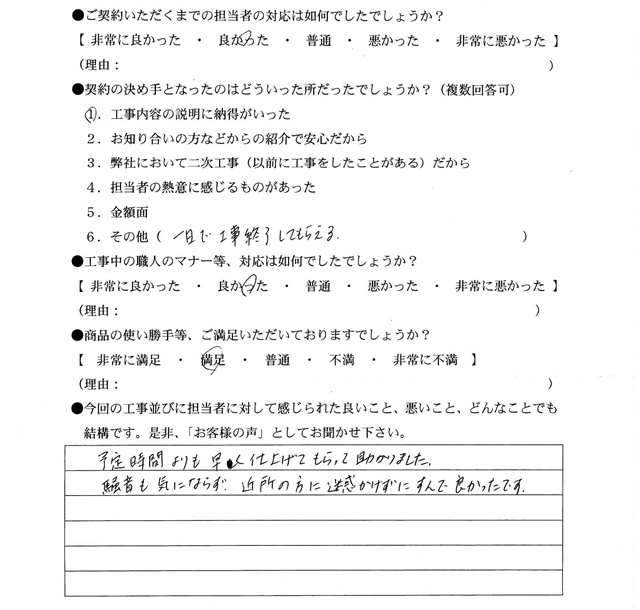 ●ご契約いただくまでの担当者の対応は如何でしたでしょうか？
【 非常に良かった ・ 良かった ・ 普通 ・ 悪かった ・ 非常に悪かった 】
（理由： ）
●契約の決め手となったのはどういった所だったでしょうか？（複数回答可）
１．工事内容の説明に納得がいった
２．お知り合いの方などからの紹介で安心だから
３．弊社において二次工事（以前に工事をしたことがある）だから
４．担当者の熱意に感じるものがあった
５．金額面
６．その他（ 一日で工事終了してもらえる. ）
●工事中の職人のマナー等、対応は如何でしたでしょうか？
【 非常に良かった ・ 良かった ・ 普通 ・ 悪かった ・ 非常に悪かった 】
（理由： ）
●商品の使い勝手等、ご満足いただいておりますでしょうか？
【 非常に満足 ・ 満足 ・ 普通 ・ 不満 ・ 非常に不満 】
（理由： ）
●今回の工事並びに担当者に対して感じられた良いこと、悪いこと、どんなことでも
結構です。是非、「お客様の声」としてお聞かせ下さい。
予定時間よりも早く仕上げてもらって助かりました。
騒音も気にならず. 近所の方に迷惑かけずにすんで良かったです.